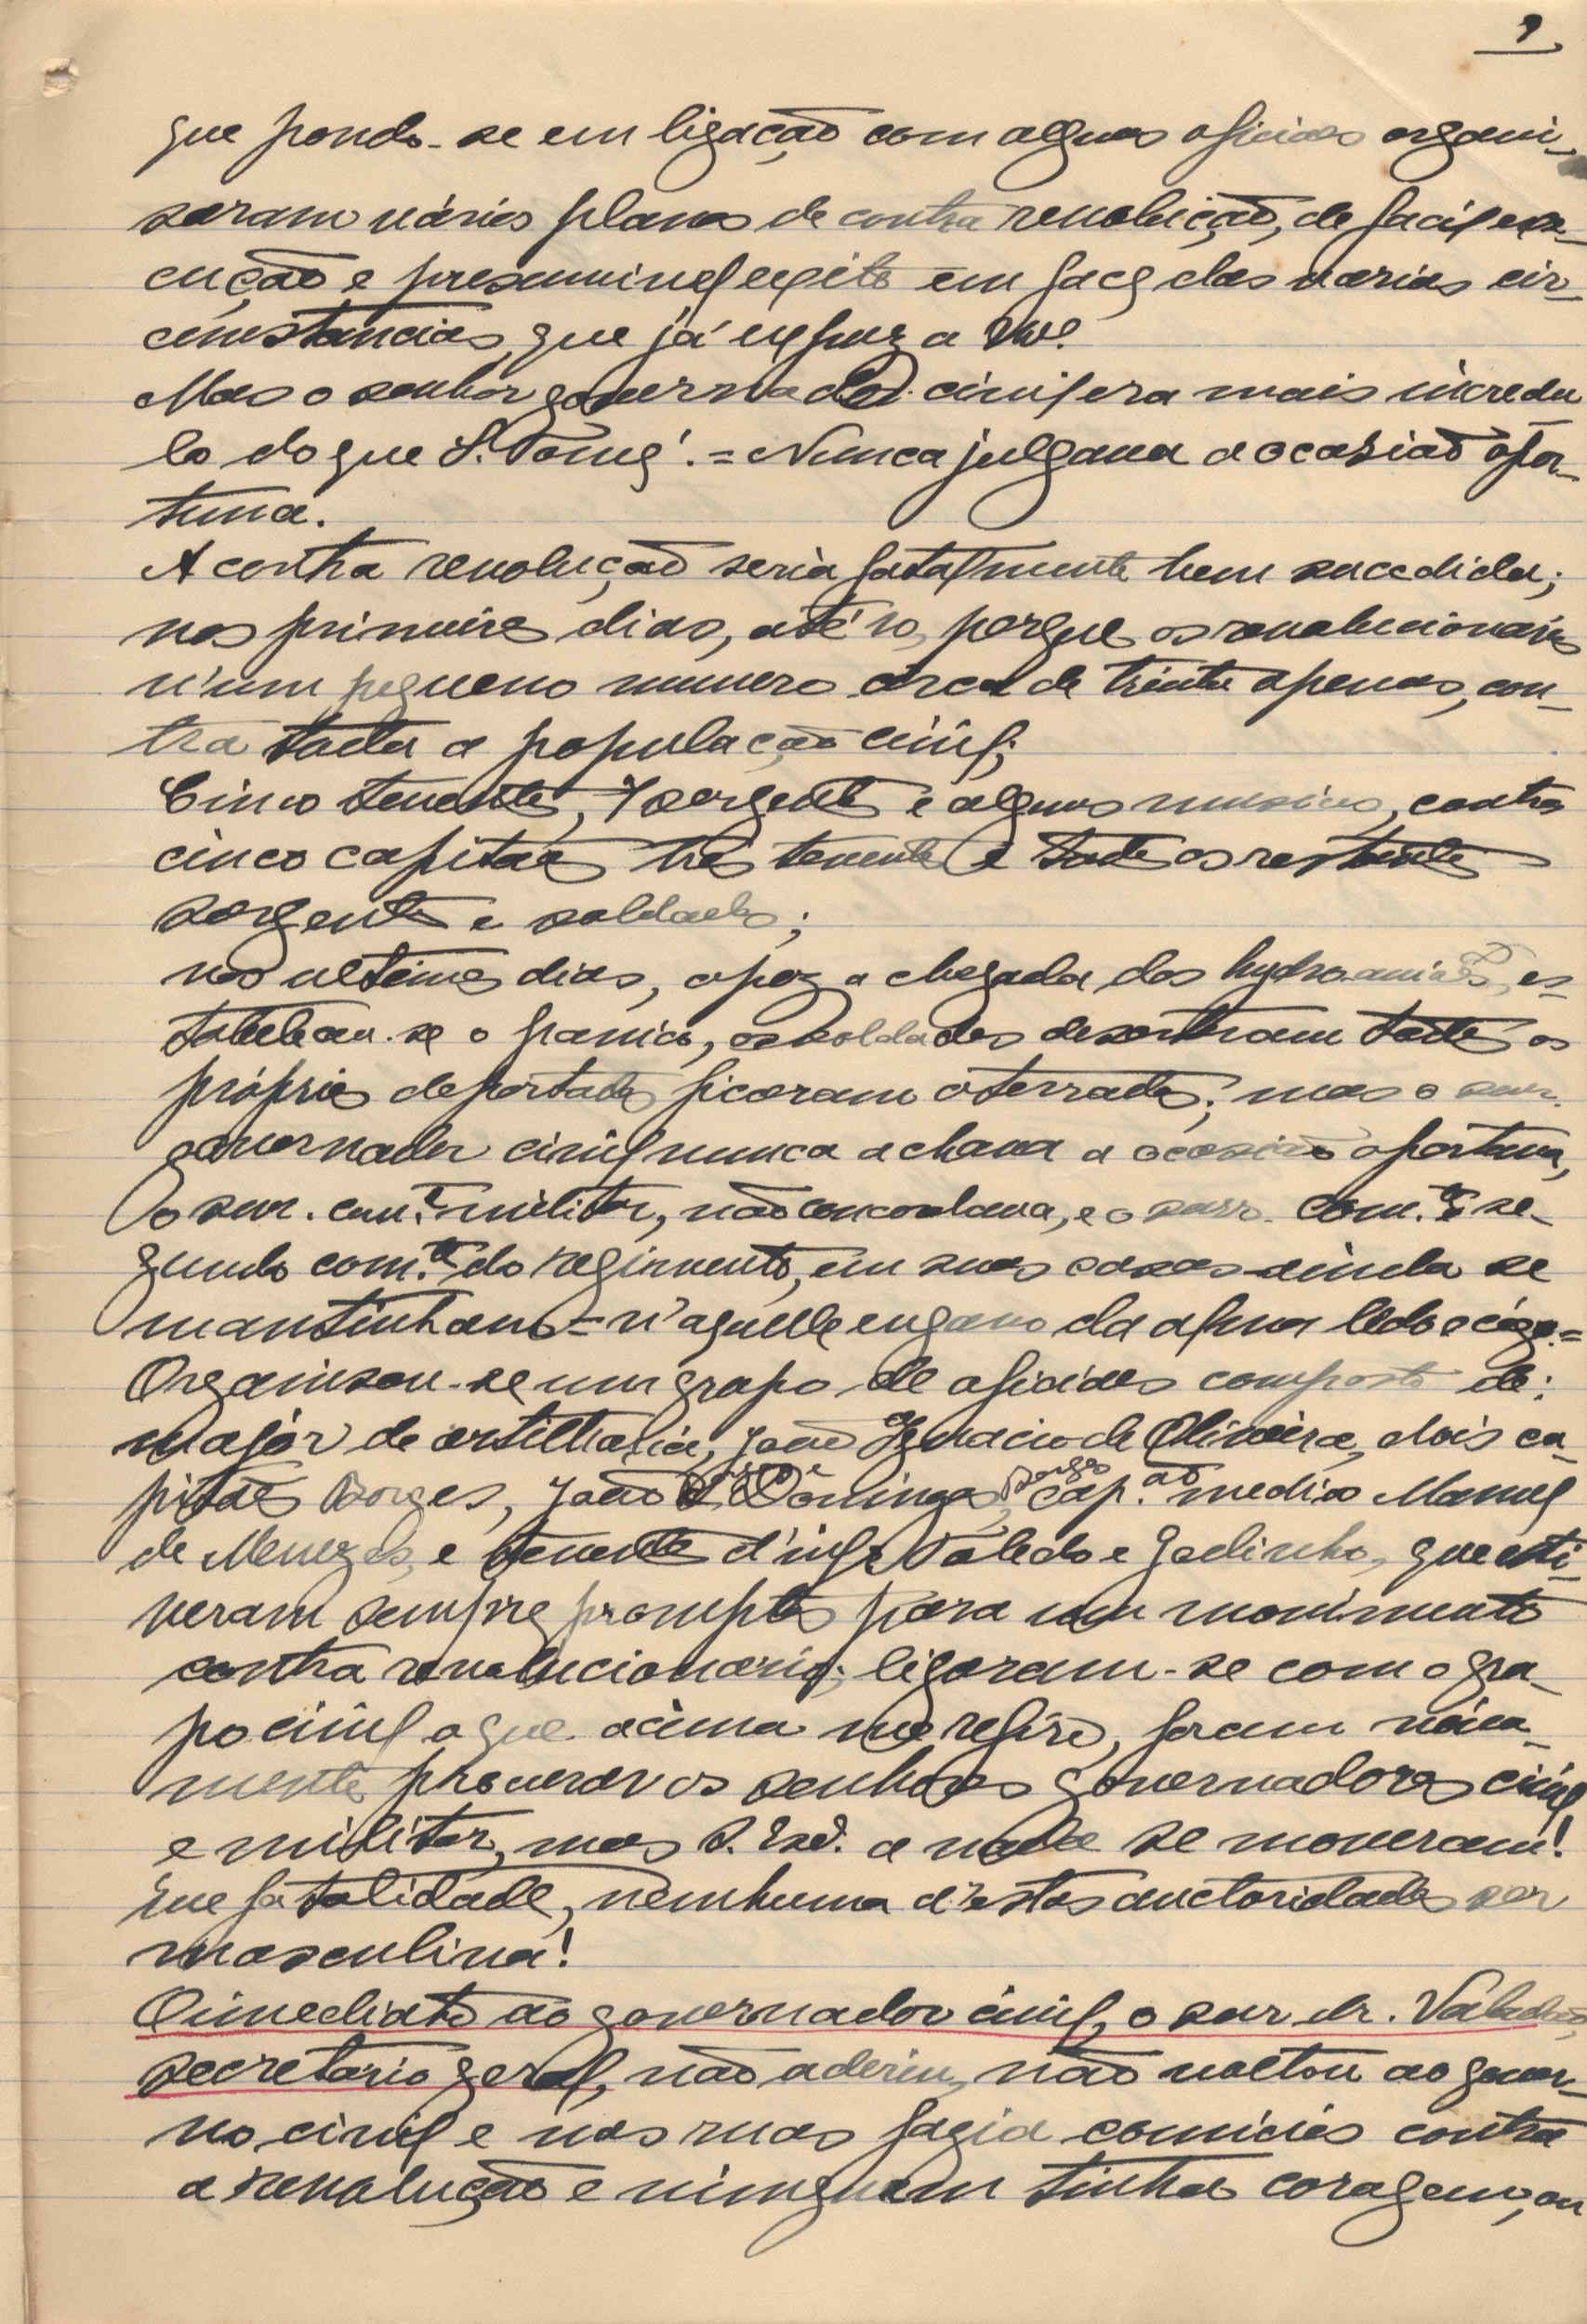 9
que pondo-se em ligação com alguns oficiaes organi-
saram vários planos de contra revolução, de facil exe-
cução e presumivel exito em face das varias cir-
cunstancias, que já expuz a V.ª
Mas o senhor governador civil era mais incredu
lo do que S. Tomé. = Nunca julgava a ocasião opor-
tuna.
A contra revolução seria fatalmente bem sucedida;
nos primeiros dias, até 10, porque os revolucionários
n'um pequeno numero cerca de trinta apenas, con-
tra toda a população civil;
Cinco tenentes, 7 sargentos e alguns musicos, contra
cinco capitães tres tenentes e todos os restantes
sargentos e soldados;
nos ultimos dias, apoz a chegada dos hydro-aviões, es-
tabeleceu-se o panico, os soldados desertaram todos os
próprios deportados ficaram aterrados; mas o snr.
governador civil nunca achava a ocasião oportuna,
o snr. com.te militar, não concordava, e o snr. com.te e se-
gundo com.te do regimento, em suas casas ainda se
mantinham = n'aquelle engano da alma ledo e cégo. =
Organisou-se um grupo de oficiaes composto de:
major de artilharia, João Ignacio de Oliveira, dois ca
pitães Borges, João Domingos, cap.ão medico Manuel
de Menezes, e tenentes d'inf.ª Toledo e Godinho, que esti-
veram sempre promptos para um movimento
contra revolucionario; ligaram-se com o gru-
po civil a que acima me refiro, foram vária-
mente procurar os senhores governadores civil
e militar, mas S. Ex.ª a nada se moveram!
Que fatalidade, nemhuma d'estas auctoridades ser
masculina!
O imediato ao governador civil, o snr dr. Valadão,
secretário geral, não aderiu, não voltou ao gover-
no civil e nas ruas fazia comicios contra
a revolução e ninguem tinha coragem, ou